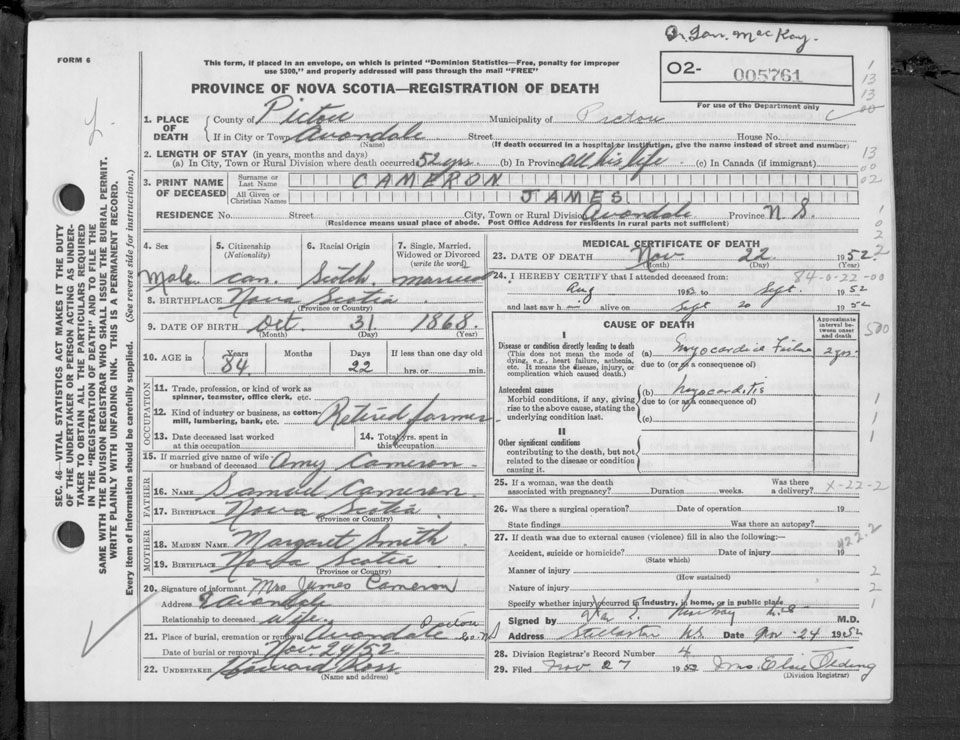 Dr. Ian. MacKay.
FORM 6
This form, if placed in an envelope, on which is printed "Dominion Statistics—Free, penalty for improper
use $300," and properly addressed will pass through the mail "FREE"
O2- 005761
For use of the Department only
PROVINCE OF NOVA SCOTIA—REGISTRATION OF DEATH
1. PLACE OF DEATH County of Pictou Municipality of Pictou
If in City or Town Avondale Street House No.
(Name) (If death occurred in a hospital or institution, give the name instead of street and number)
2. LENGTH OF STAY (in years, months and days)
(a) In City, Town or Rural Division where death occurred 52 yrs. (b) In Province all his life (c) In Canada (if immigrant)
3. PRINT NAME OF DECEASED Surname or Last Name CAMERON
All Given or Christian Names JAMES
RESIDENCE No. Street City, Town or Rural Division Avondale Province N.S.
(Residence means usual place of abode. Post Office Address for residents in rural parts not sufficient)
4. Sex 5. Citizenship (Nationality) 6. Racial Origin 7. Single, Married, Widowed or Divorced (write the word)
Male can. Scotch married
8. BIRTHPLACE Nova Scotia
(Province or Country)
9. DATE OF BIRTH Oct. 31. 1868.
(Month) (Day) (Year)
10. AGE in Years Months Days If less than one day old
84 22 hrs. or min.
OCCUPATION
11. Trade, profession, or kind of work as
spinner, teamster, office clerk, etc.
12. Kind of industry or business, as cotton-
mill, lumbering, bank, etc. Retired farmer
13. Date deceased last worked
at this occupation
14. Total yrs. spent in
this occupation
15. If married give name of wife
or husband of deceased Amy Cameron
FATHER
16. NAME Samuel Cameron.
17. BIRTHPLACE Nova Scotia
(Province or Country)
MOTHER
18. MAIDEN NAME Margaret Smith
19. BIRTHPLACE Nova Scotia
(Province or Country)
20. Signature of informant Mrs James Cameron
Address Avondale
Relationship to deceased wife
21. Place of burial, cremation or removal Avondale Pictou Co. N.S
Date of burial or removal Nov. 24/52
22. UNDERTAKER Howard Ross
(Name and address)
MEDICAL CERTIFICATE OF DEATH
23. DATE OF DEATH Nov. 22 1952.
(Month) (Day) (Year)
24. I HEREBY CERTIFY that I attended deceased from: 84-0-22-00
Aug 1952 to Sept. 1952
and last saw h alive on Sept 20 1952
CAUSE OF DEATH
Approximate interval between onset and death
I
Disease or condition directly leading to death
(This does not mean the mode of
dying, e.g., heart failure, asthenia,
etc. It means the disease, injury, or
complication which caused death.)
(a) Myocardial Failure 2 yrs.
due to (or as a consequence of)
Antecedent causes
Morbid conditions, if any, giving
rise to the above cause, stating the
underlying condition last.
(b) Myocarditis
due to (or as a consequence of)
(c)
II
Other significant conditions
contributing to the death, but not
related to the disease or condition
causing it.
25. If a woman, was the death
associated with pregnancy? Duration weeks. Was there
a delivery? X-22-2
26. Was there a surgical operation? Date of operation 19
State findings Was there an autopsy?
27. If death was due to external causes (violence) fill in also the following:—
422-2
Accident, suicide or homicide? Date of injury 19
(State which)
Manner of injury
(How sustained)
Nature of injury
Specify whether injury occurred in industry, in home, or in public place
Signed by M.D.
Address Stellarton N.S. Date Nov - 24 1952
28. Division Registrar's Record Number 4
29. Filed Nov. 27 1952 Mrs. Elsie Olding
(Division Registrar)
SEC. 46—VITAL STATISTICS ACT MAKES IT THE DUTY
OF THE UNDERTAKER OR PERSON ACTING AS UNDER-
TAKER TO OBTAIN ALL THE PARTICULARS REQUIRED
IN THE "REGISTRATION OF DEATH" AND TO FILE THE
SAME WITH THE DIVISION REGISTRAR WHO SHALL ISSUE THE BURIAL PERMIT.
WRITE PLAINLY WITH UNFADING INK. THIS IS A PERMANENT RECORD.
Every item of information should be carefully supplied. (See reverse side for instructions.)